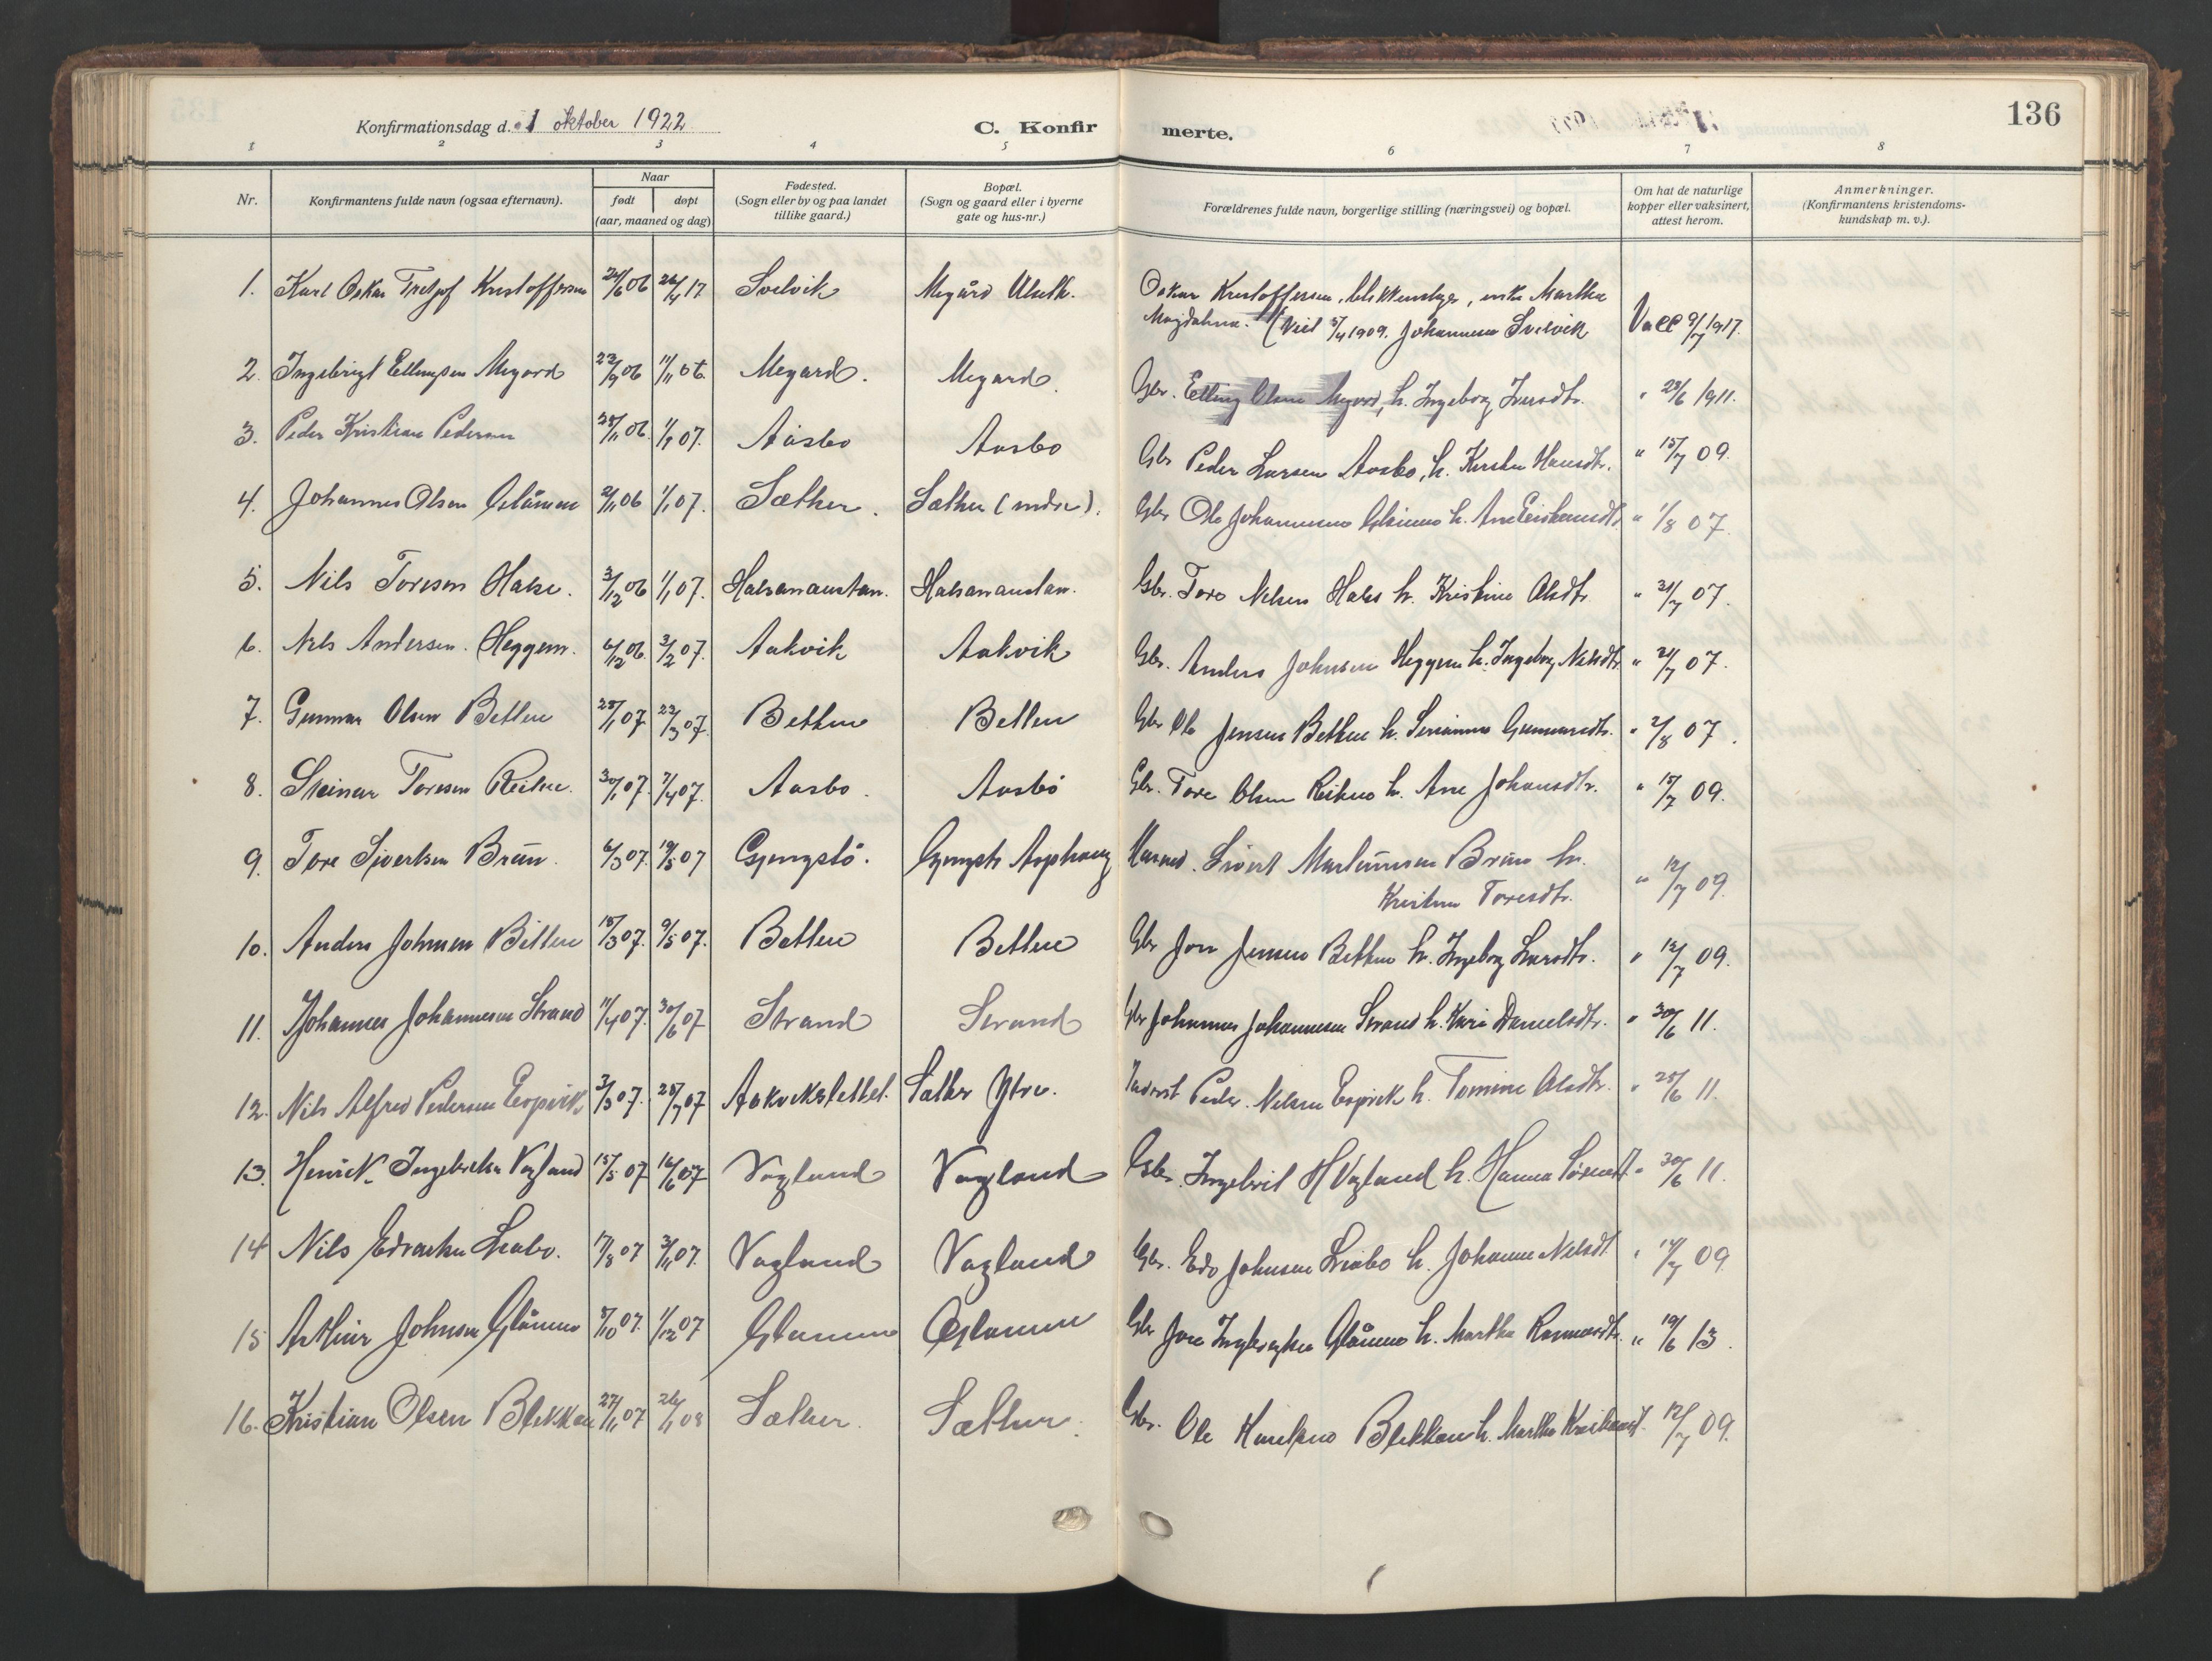 136
Konfirmationsdag d. 1 oktober 1922
C. Konfir merte.
1 2 3 4 5 6 7 8
Nr.
Konfirmantens fulde navn (ogsaa efternavn).
Naar
født døpt
(aar, maaned og dag)
Fødested.
(Sogn eller by og paa landet
tillike gaard.)
Bopæl.
(Sogn og gaard eller i byerne
gate og hus-nr.)
Forældrenes fulde navn, borgerlige stilling (næringsvei) og bopæl.
Om hat de naturlige
kopper eller vaksinert,
attest herom.
Anmerkninger.
(Konfirmantens kristendoms-
kundskap m. v.).
1. Karl Oskar Kristoffersen 24/6 06 26/4 17 Svelvik Megård Oskar Kristoffersen, enke Martha
Magdalena. (Viet 5/4 1909. Johannesen Svelvik Vacc 9/7 1917.
2. Ingebrigt Ellingsen Megard 23/9 06 11/11 06 Megard. Megard. Gbr. Elling Olsen Megard, h. Ingeborg Iversdtr. " 28/6 1911.
3. Peder Kristian Pedersen 25/11 06. 1/1 07. Aasbo Aasbo Gbr Peder Larsen Aasbo, h. Kirsten Hansdtr. " 15/7 09.
4. Johannes Olsen Glåmen 2/11 06 1/1 07. Sæther. Sæther (indre). Gbr Ole Johannesen Glåmen h. Ane " 1/8 07.
5. Nils Toresen Halse. 3/12 06 1/1 07. Halsanaustan. Halsanaustan. Gbr. Tore Nilsen Halse h. Kristine Olsdtr " 31/7 07.
6. Nils Andersen Heggem. 6/12 06. 3/2 07. Aakvik Aakvik Gbr. Anders Johnsen Heggem h. Ingeborg Nilsdtr " 21/7 07.
7. Gunnar Olsen Betten 25/1 07 22/3 07. Betten Betten Gbr Ole Jensen Betten h. Serianna Gunnarsdtr. " 2/8 07.
8. Steinar Toresen Reiten. 30/1 07. 7/4 07. Aasbo. Aasbø Gbr. Tore Olsen Reiten h. Ane Johansdtr. " 15/7 09.
9. Tore Sivertsen Bruun. 6/3 07. 19/5 07 Gjengstø. Gjengstø Asphaug Sivert Martinusen Bruun h.
Kristine Toresdtr. " 12/7 09.
10. Anders Johnsen Betten 15/3 07. 9/5 07. Betten Betten Gbr Jon Jensen Betten h. Ingeborg Larsdtr. " 12/7 09.
11. Johannes Johannesen Strand 11/4 07. 30/6 07 Strand Strand Gbr Johannes Johannesen Strand h. Kari Danielsdtr. " 30/6 11.
12. Nils Alfred Pedersen Espvik 3/5 07. 28/7 07 Aakvikslettet. Sæther Ytre. Peder Nilsen Espvik h. Tomine Olsdtr. " 28/6 11.
13. Henrik Ingebrigtsen Vagland 15/5 07 16/6 07 Vagland Vagland Gbr. Ingebrit H Vagland h. Hanna " 30/6 11.
14 Nils Edvardsen Liabø. 17/8 07 3/11 07. Vagland Vagland Gbr. Edv Johnsen Liabø h. Johanne Nilsdt. " 14/7 09
15 Arthur Johnsen Glåmen 5/10 07. 1/12 07 Glamen Glamen Gbr Jon Ingebrigtsen Glåmen h. Martha Rasmusdtr. " 19/6 13.
16. Kristian Olsen Blekken 27/11 07 26/1 08 Sæther. Sæther. Gbr. Ole Blekken h. Martha 12/7 09.